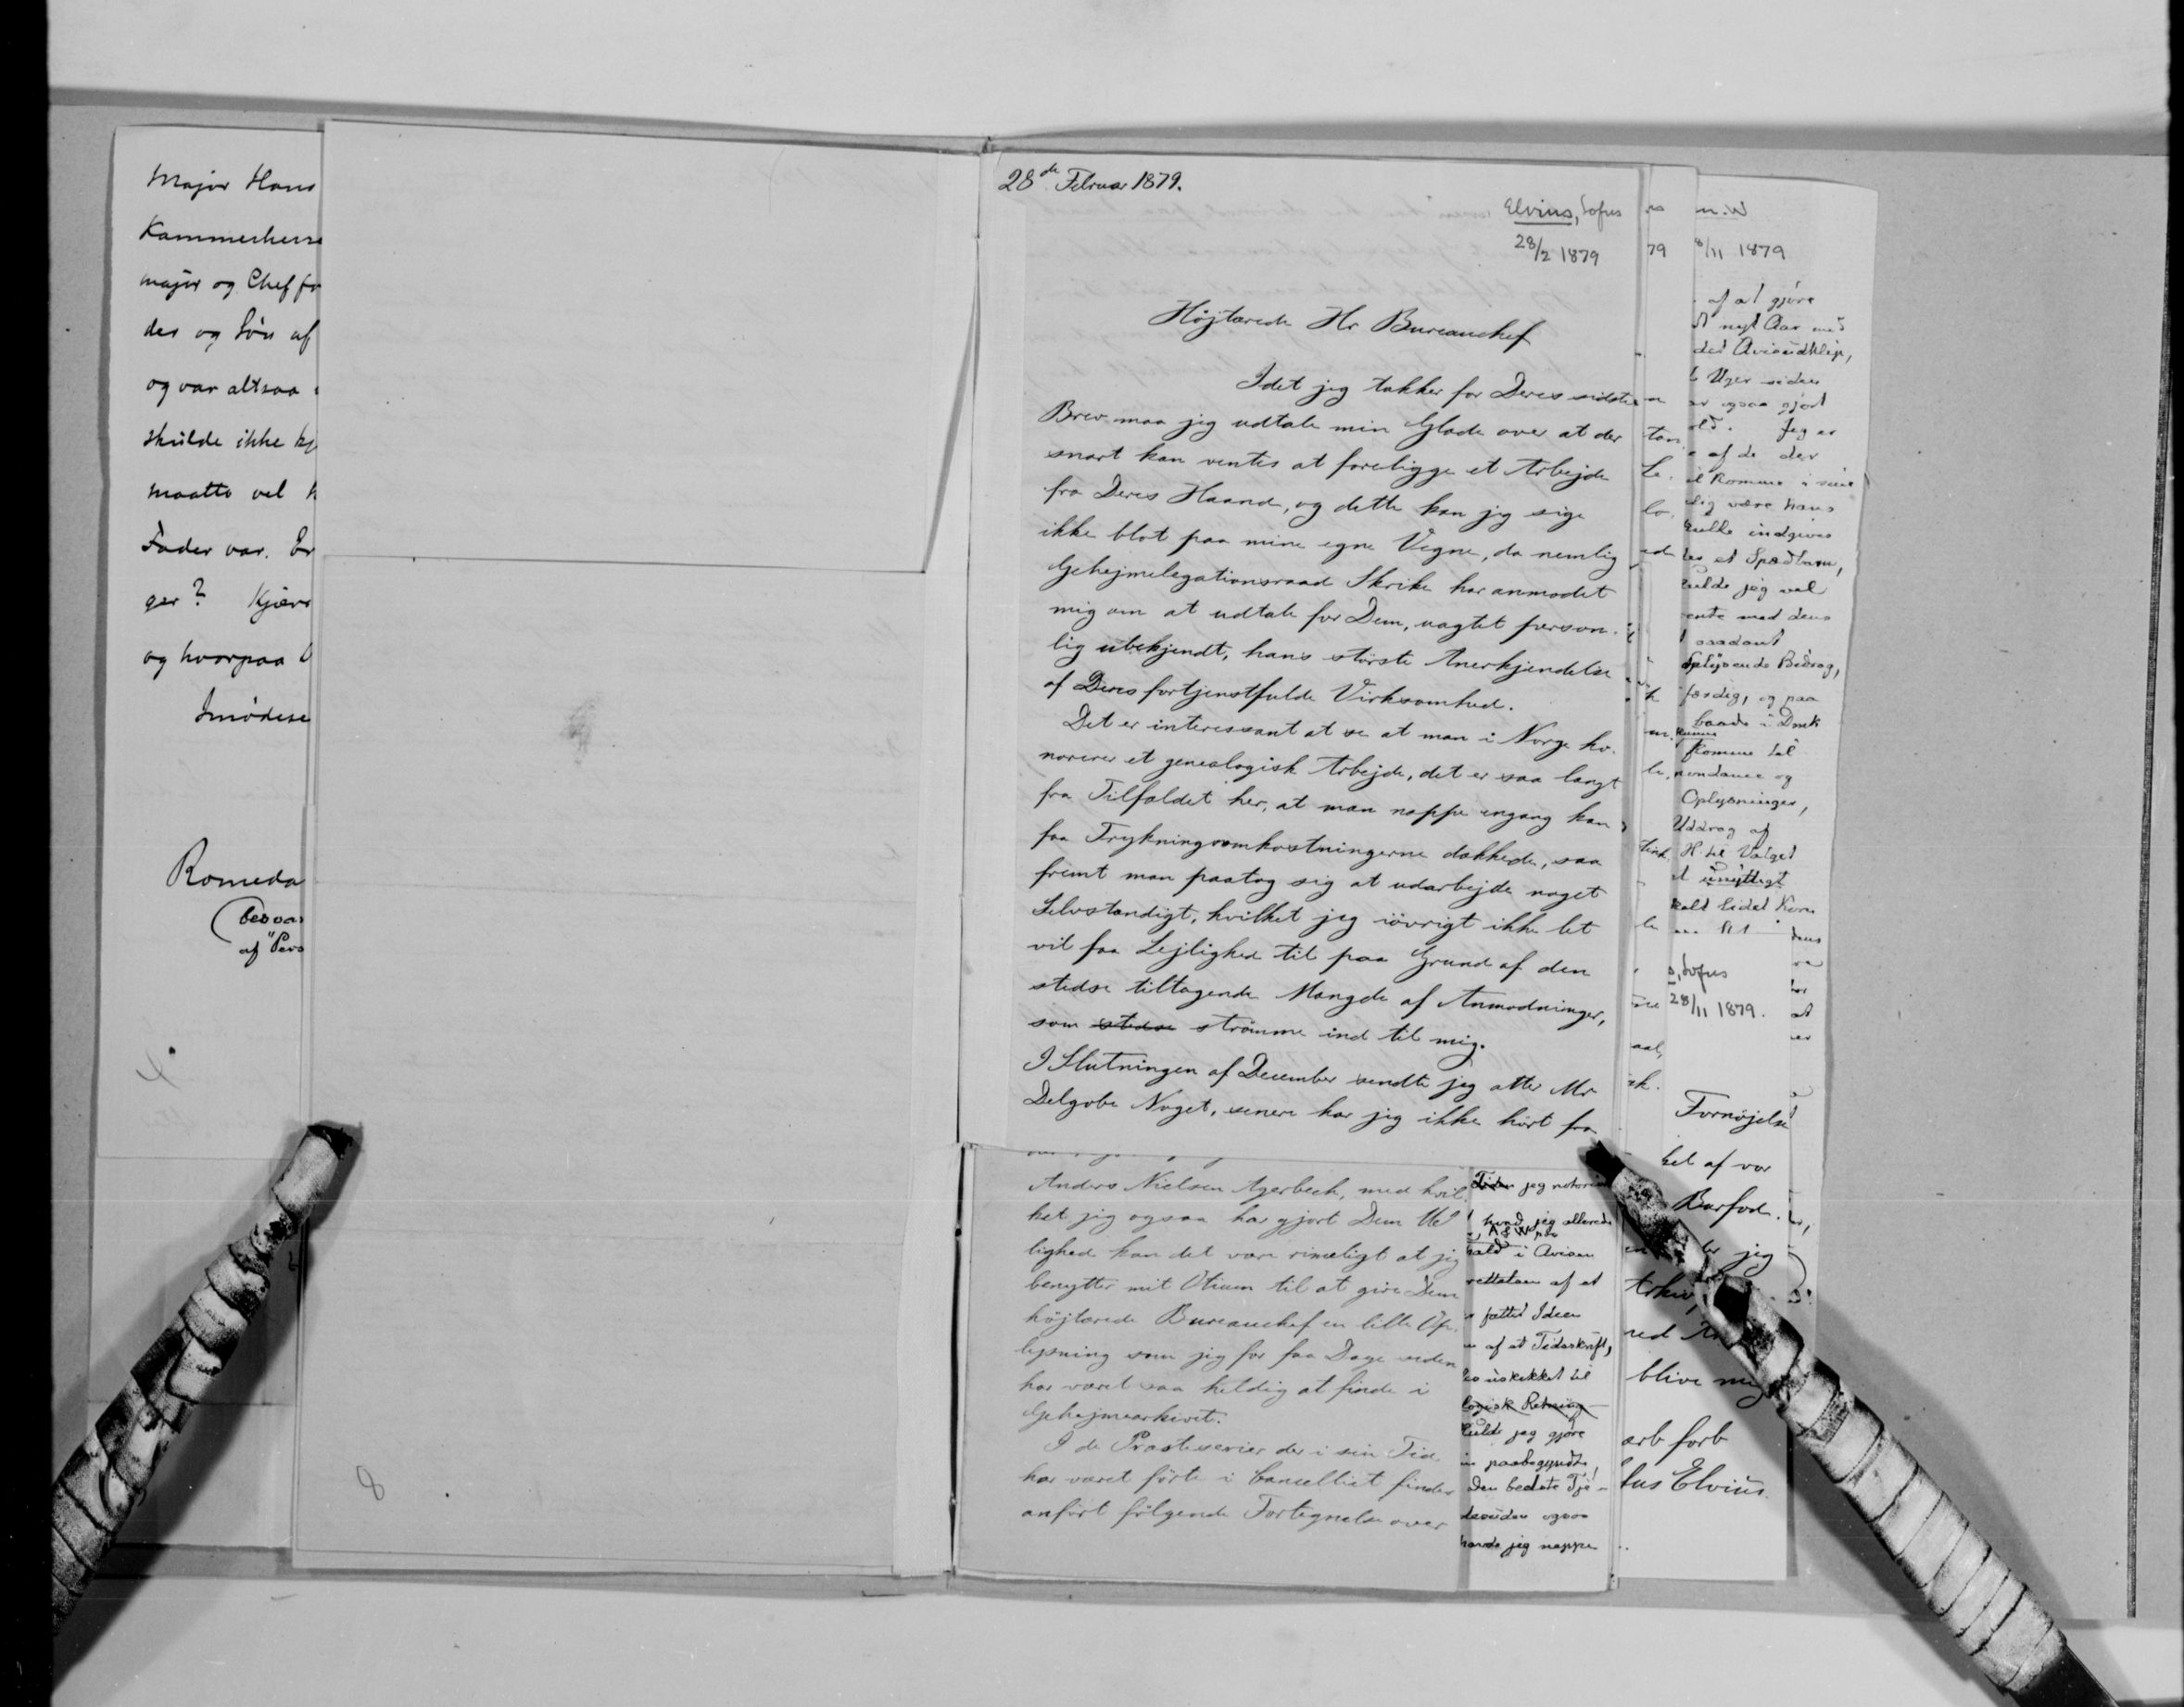 Major Hans
Kammerherre
major og Chef for
des og Søn af
og var altsaa
skulde ikke kj
maatte vel
Fader var. Er
ger? Kjære
og hvorpaa
Imødese
Romeda
besvar
af "Pers
8
28de Februar 1879.
Elvius, Sofus
28/2 1879
Højtærede Hr Bureauchef
Idet jeg takker for Deres sidste
Brev maa jeg udtale min Glæde over at der
snart kan ventes at foreligge et Arbejde
fra Deres Haand, og dette kan jeg sige
ikke blot paa mine egne Vegne, da nemlig
Gehejmelegationsraad Skrike har anmodet
mig om at udtale for Dem, uagtet person-
lig ubekjendt, hans største Anerkjendelse
af Deres fortjenstfulde Virksomhed.
Det er interessant at se at man i Norge ho-
norerer et genealogisk Arbejde, det er saa langt
fra Tilfældet her, at man næppe engang kan
faa Trykningsomkostningerne dækkede, saa
fremt man paatog sig at udarbejde noget
Selvstændigt, hvilket jeg iøvrigt ikke let
vil faa Lejlighed til paa Grund af den
stedse tiltagende Mængde af Anmodninger,
som stedse strømme ind til mig.
I Slutningen af December sendte jeg atter Mr
Delgobe Noget, senere har jeg ikke hørt fra
Anders Nielsen Agerbech, med hvil-
ket jeg ogsaa har gjort Dem Ul
lighed kan det være rimeligt at jeg
benytter mit Otium til at give Dem
højtærede Bureauchef en lille Op-
lysning som jeg for faa Dage siden
har været saa heldig at finde i
Gehejmearkivet.
I de Præsteserier der i sin Tid
har været førte i Cancelliet findes
anført følgende Fortegnelse over
Tiden jeg notorisk
hvad jeg allerede
hald i Avisen
rettelsen af et
fattet Ideen
af et Tidsskrift,
uskikket til
logisk Retning
kulde jeg gjøre
paabegyndte,
Den bedste Tje-
desuden ogsaa
havde jeg næppe
n. W
8/11 1879
af at gjøre
nyt Aar med
det Avisudklip,
Uger siden
ogsaa gjort
old. Jeg er
af de der
komme i sine
lig være hans
kulle indgives
et Spædbarn,
kulde jeg vel
vente med dens
saadant
Oplysende Bidrag,
færdig, og paa
baade i Druk
kunne
komme til
nondance og
Oplysninger,
Uddrag af
H. til Valget
et unyttigt
kald lidet Korn
s, Sofus
28/11 1879.
Fornøjelse
ket af vor
Barfod.
jeg
Arkiv,
blive mig
ærb forb
fus Elvius